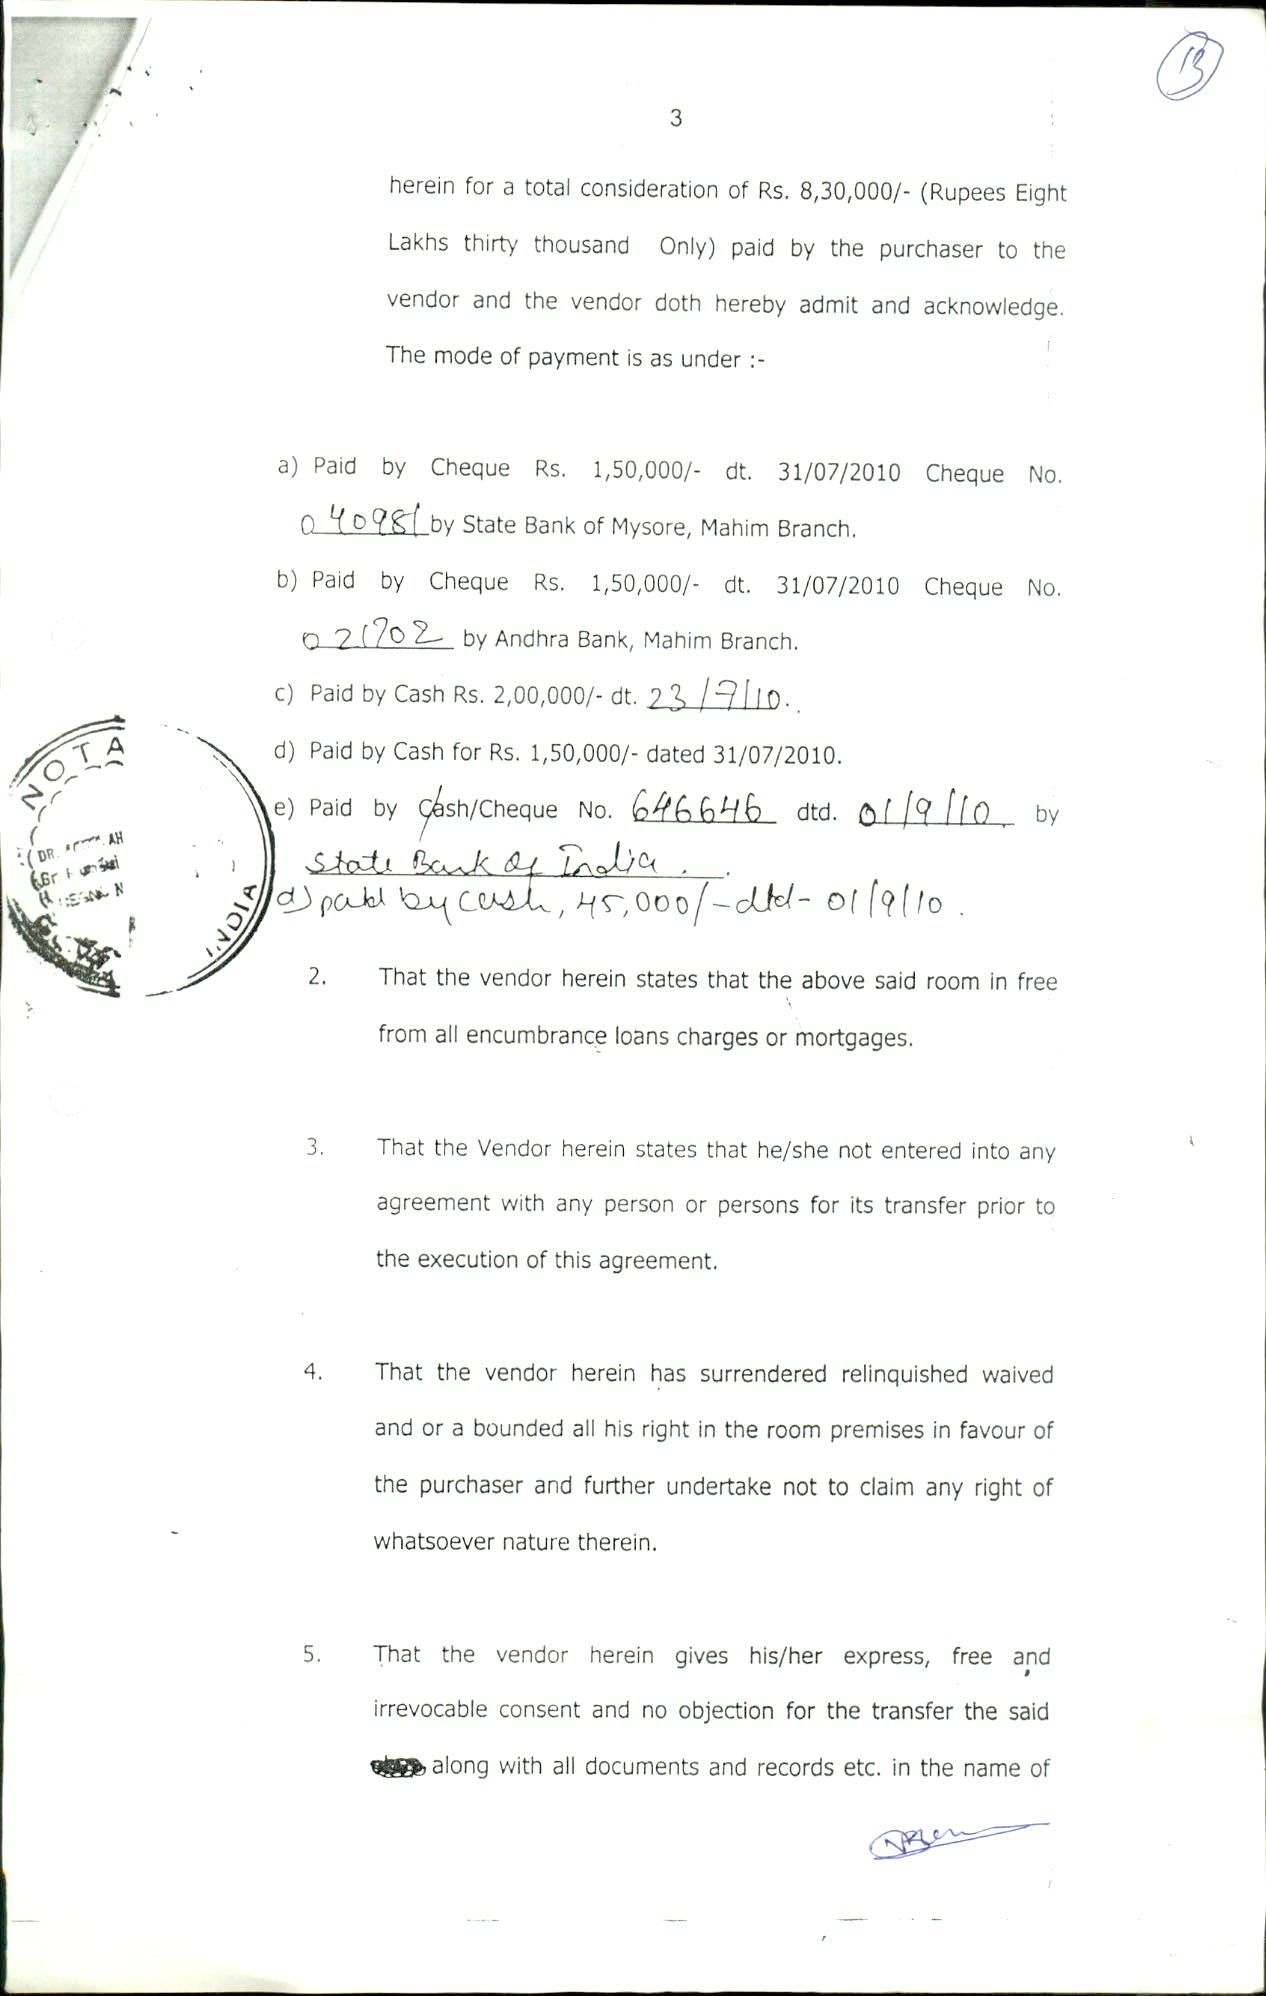 13
3
herein for a total consideration of Rs. 8,30,000/- (Rupees Eight
Lakhs thirty thousand Only) paid by the purchaser to the
vendor and the vendor doth hereby admit and acknowledge.
The mode of payment is as under :-
a) Paid by Cheque Rs. 1,50,000/- dt. 31/07/2010 Cheque No.
040981 by State Bank of Mysore, Mahim Branch.
b) Paid by Cheque Rs. 1,50,000/- dt. 31/07/2010 Cheque No.
021702 by Andhra Bank, Mahim Branch.
c) Paid by Cash Rs. 2,00,000/- dt. 23/7/10.
d) Paid by Cash for Rs. 1,50,000/- dated 31/07/2010.
e) Paid by Cash/Cheque No. 646646 dtd. 01/9/10. by
State Bank of India.
d) paid by cash, 45,000/- dtd- 01/9/10.
NOTA
DR.
INDIA
2. That the vendor herein states that the above said room in free
from all encumbrance loans charges or mortgages.
3. That the Vendor herein states that he/she not entered into any
agreement with any person or persons for its transfer prior to
the execution of this agreement.
4. That the vendor herein has surrendered relinquished waived
and or a bounded all his right in the room premises in favour of
the purchaser and further undertake not to claim any right of
whatsoever nature therein.
5. That the vendor herein gives his/her express, free and
irrevocable consent and no objection for the transfer the said
along with all documents and records etc. in the name of